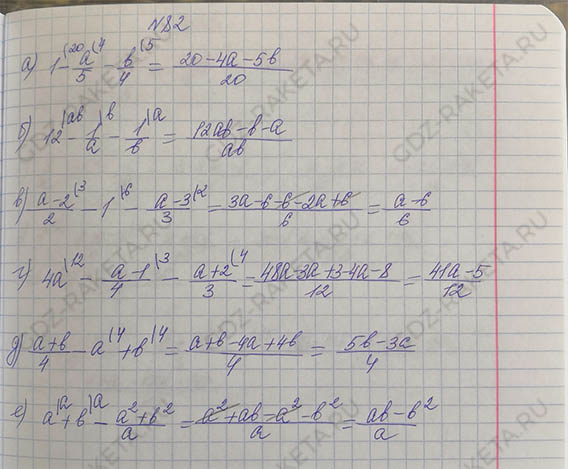 №82
а) 1|20 - a/5|4 - b/4|5 = (20-4a-5b)/20
б) 12|ab - 1/a|b - 1/b|a = (12ab-b-a)/ab
в) (a-2)/2|3 - 1|6 - (a-3)/3|2 = (3a-6-6-2a+6)/6 = (a-6)/6
г) 4a|12 - (a-1)/4|3 - (a+2)/3|4 = (48a-3a+3-4a-8)/12 = (41a-5)/12
д) (a+b)/4 - a|4 + b|4 = (a+b-4a+4b)/4 = (5b-3a)/4
е) a|a + b|a - (a²+b²)/a = (a²+ab-a²-b²)/a = (ab-b²)/a
GDZ-RAKETA.RU
GDZ-RAKETA.RU
GDZ-RAKETA.RU
GDZ-RAKETA.RU